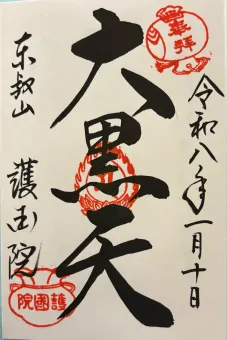 奉拝
令和八年一月十日
大黒天
東叡山
護国院
護國院